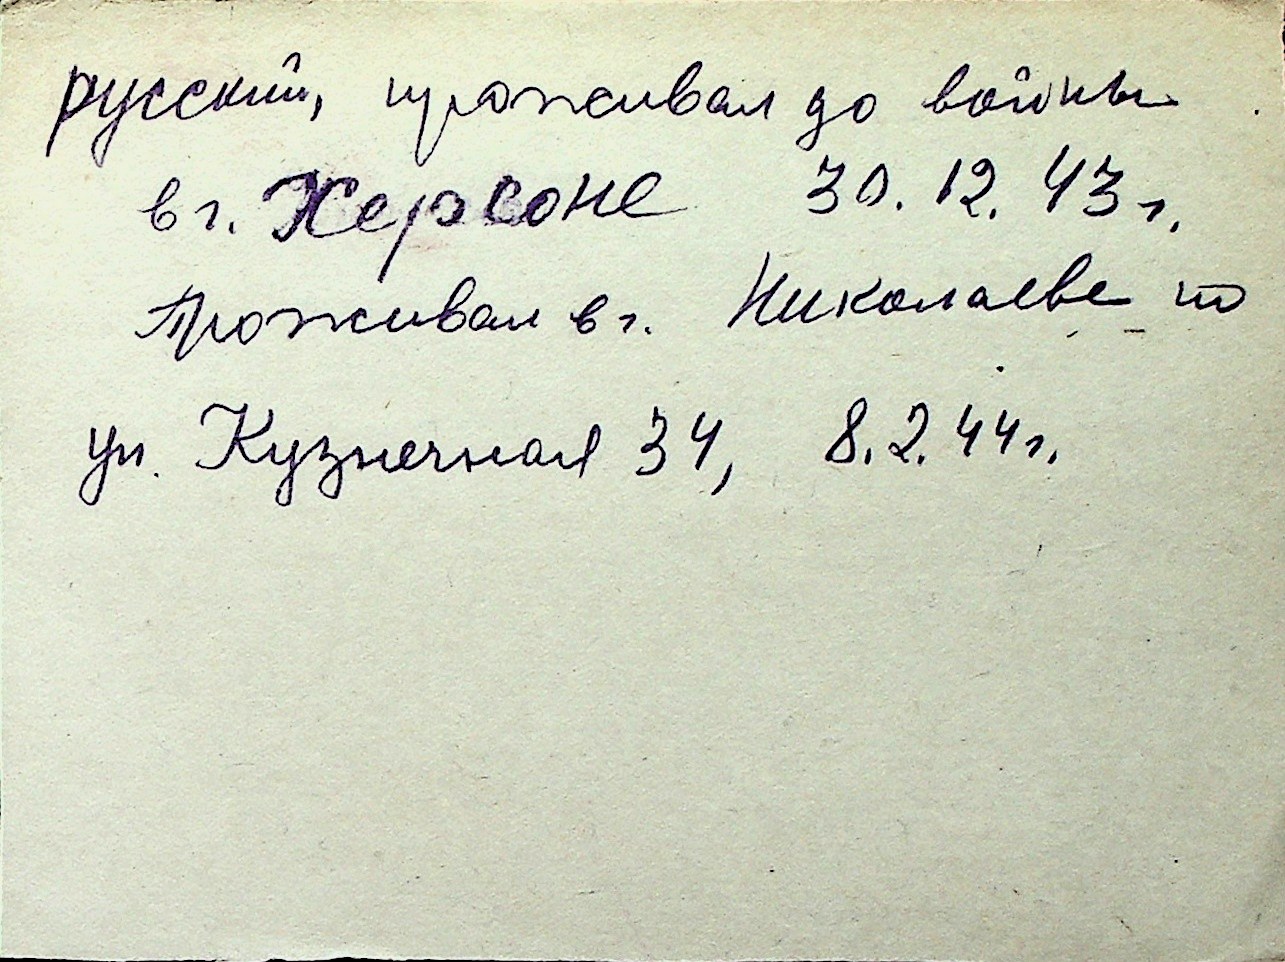 русский, проживал до войны
в г. Херсоне 30.12.43г.
Проживал в г. Николаеве по
ул. Кузнечная 34, 8.2.44г.